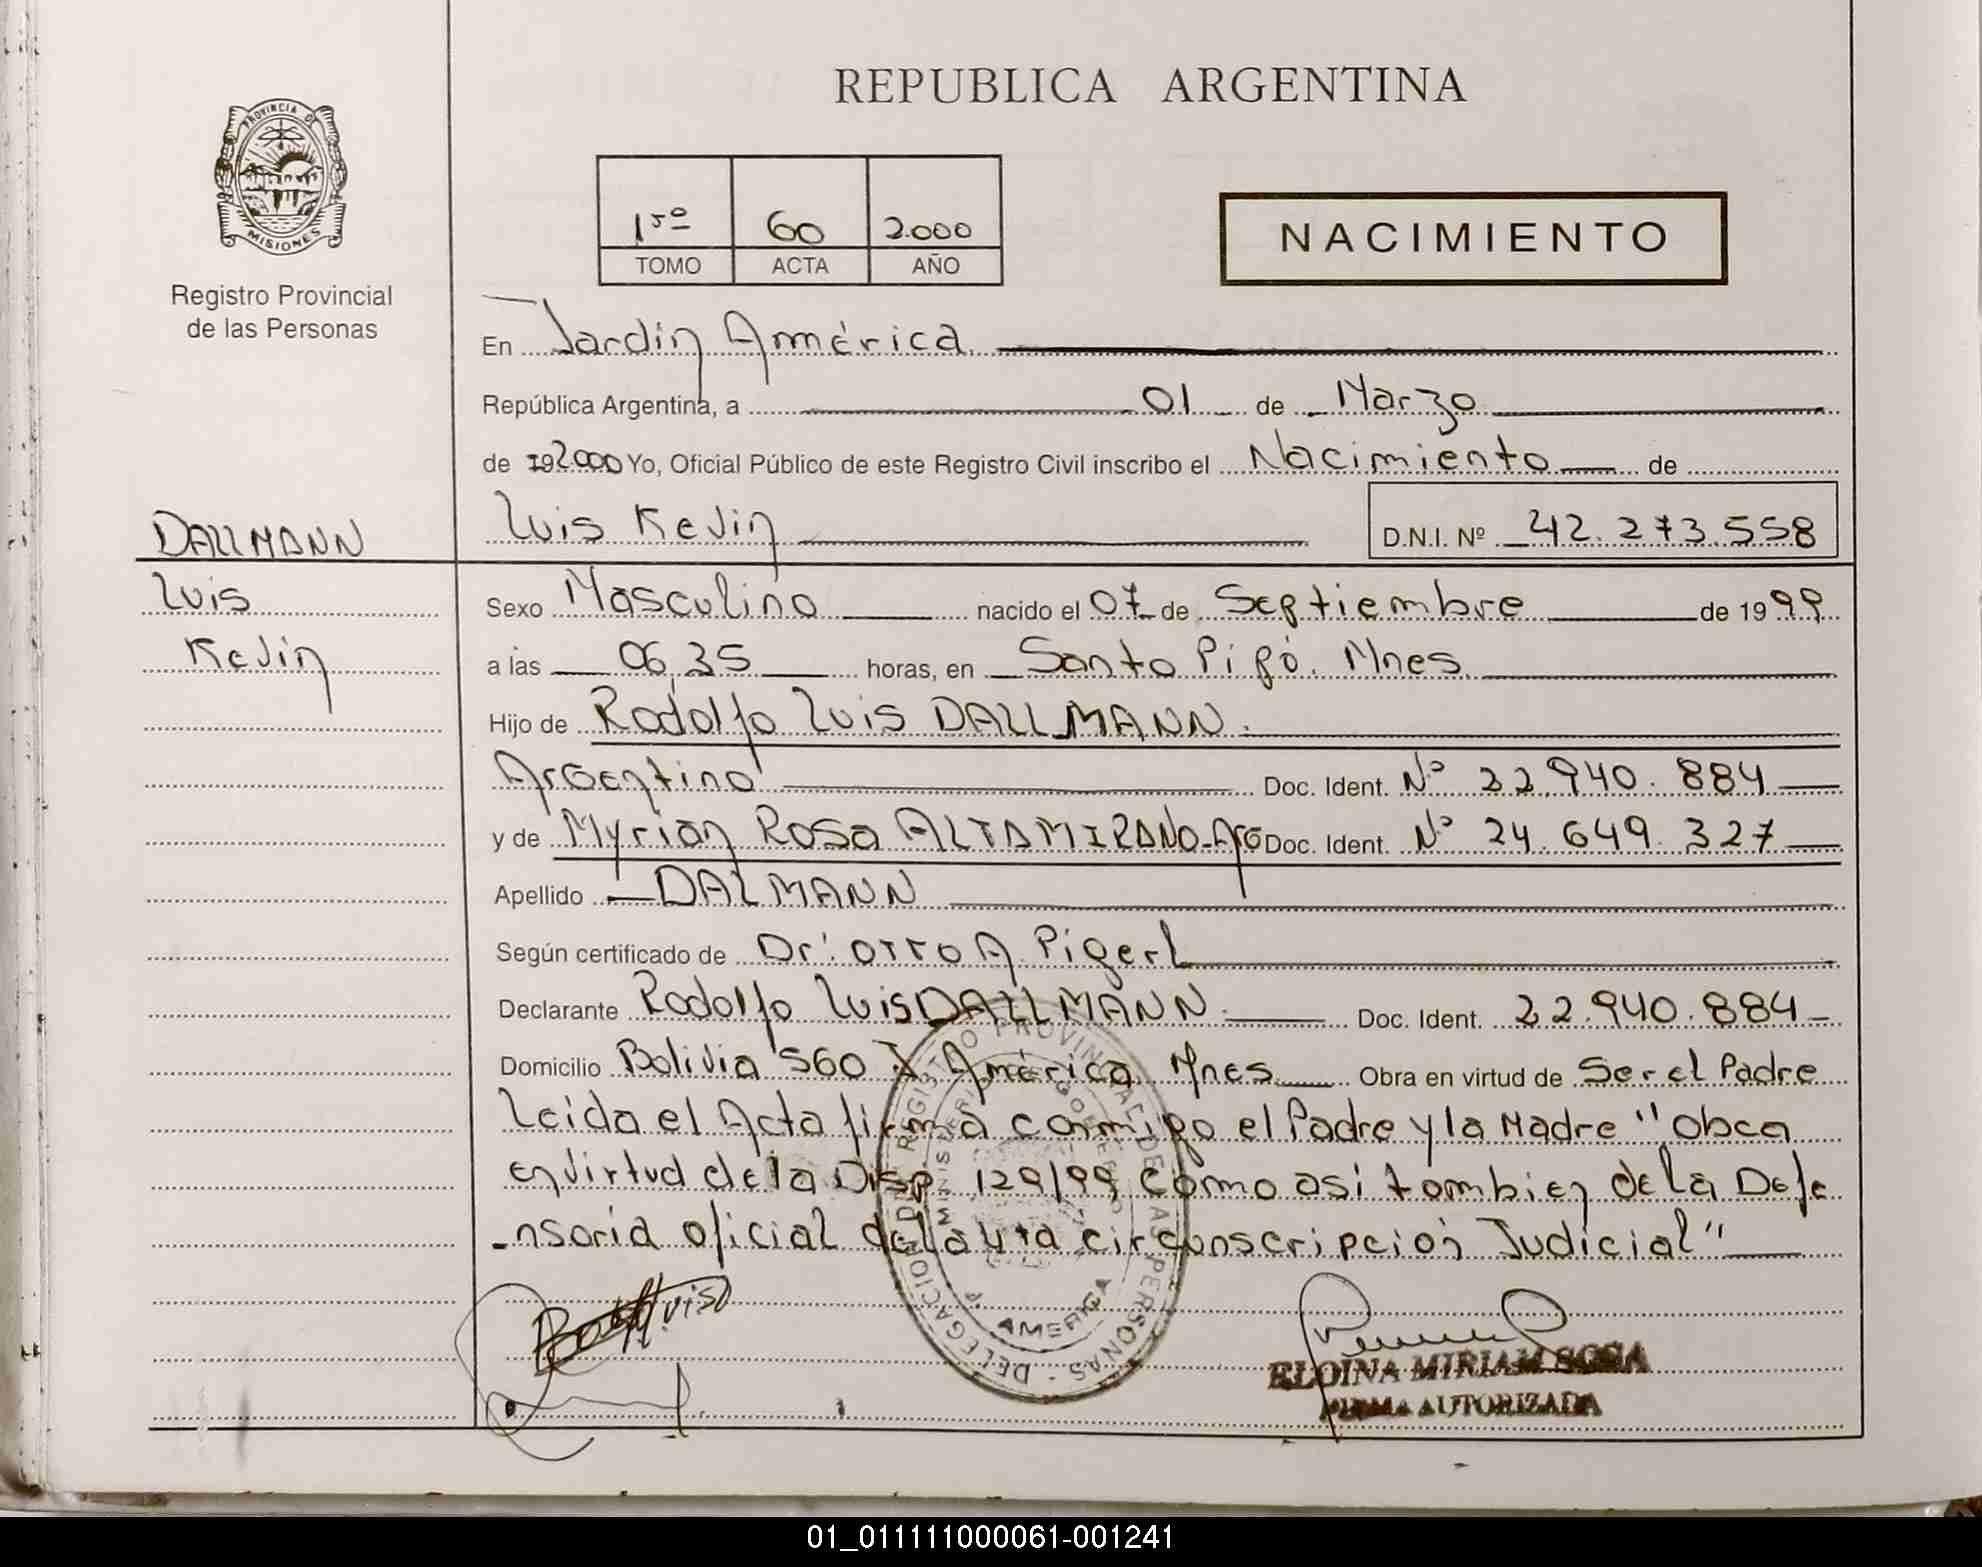 REPUBLICA ARGENTINA
PROVINCIA DE
MISIONES
Registro Provincial
de las Personas
1ºº 60 2.000
TOMO ACTA AÑO
NACIMIENTO
En Jardín América
República Argentina, a 01 de Marzo
de 192000 Yo, Oficial Público de este Registro Civil inscribo el Nacimiento de
DALLMANN
Luis Kevin D.N.I. Nº 42.273.558
Luis
Kevin
Sexo Masculino nacido el 07 de Septiembre de 1999
a las 06,35 horas, en Santo Pipó. Mnes.
Hijo de Rodolfo Luis DALLMANN.
Argentino Doc. Ident. Nº 22.940.884
y de Myrian Rosa ALTAMIRANO-Arg Doc. Ident. Nº 24.649.327
Apellido DALMANN
Según certificado de Dr. OTTO A. Pigerl
Declarante Rodolfo Luis DALLMANN. Doc. Ident. 22.940.884
Domicilio Bolivia 560 J América Mnes Obra en virtud de Ser el Padre
Leida el Acta firma conmigo el Padre y la Madre "Obca
en virtud de la Disp 129/99 como asi tambien de la Defe
-nsoria oficial de la 4ta circunscripción Judicial"
DELEGACION REGISTRO PROVINCIAL DE LAS PERSONAS
MINISTERIO GOBIERNO
AMERICA
ELOINA MIRIAM SOSA
FIRMA AUTORIZADA
01_011111000061-001241